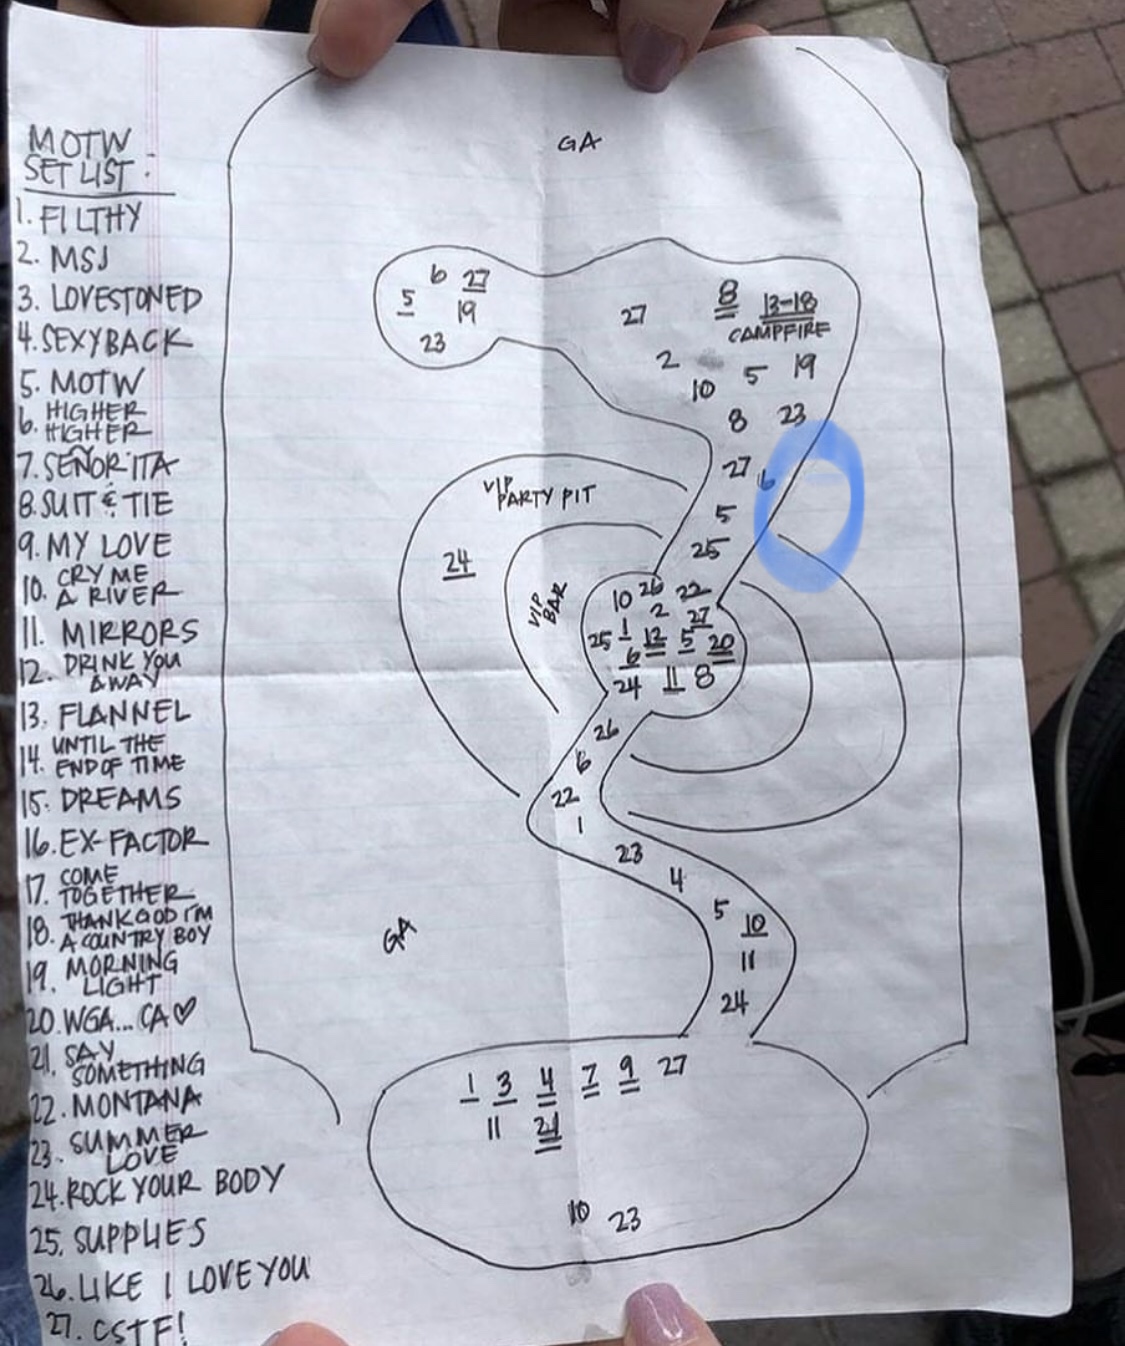 MOTW
SET LIST:
1. FILTHY
2. MSJ
3. LOVESTONED
4. SEXYBACK
5. MOTW
6. HIGHER
HIGHER
7. SEÑORITA
8. SUIT & TIE
9. MY LOVE
10. CRY ME
A RIVER
11. MIRRORS
12. DRINK YOU
AWAY
13. FLANNEL
14. UNTIL THE
END OF TIME
15. DREAMS
16. EX-FACTOR
17. COME
TOGETHER
18. THANK GOD I'M
A COUNTRY BOY
19. MORNING
LIGHT
20. WGA... CA♡
21. SAY
SOMETHING
22. MONTANA
23. SUMMER
LOVE
24. ROCK YOUR BODY
25. SUPPLIES
26. LIKE I LOVE YOU
27. CSTF!
GA
6 27
5 19
23
27 8 13-18
CAMPFIRE
2 10 5 19
8 23
27 6
5
25
VIP
PARTY PIT
24
VIP
BAR
10 26 22
2 27
25 1 12 5 20
6
24 11 8
26
6
22
1
23
4
5 10
11
24
GA
1 3 4 7 9 27
11 21
10 23